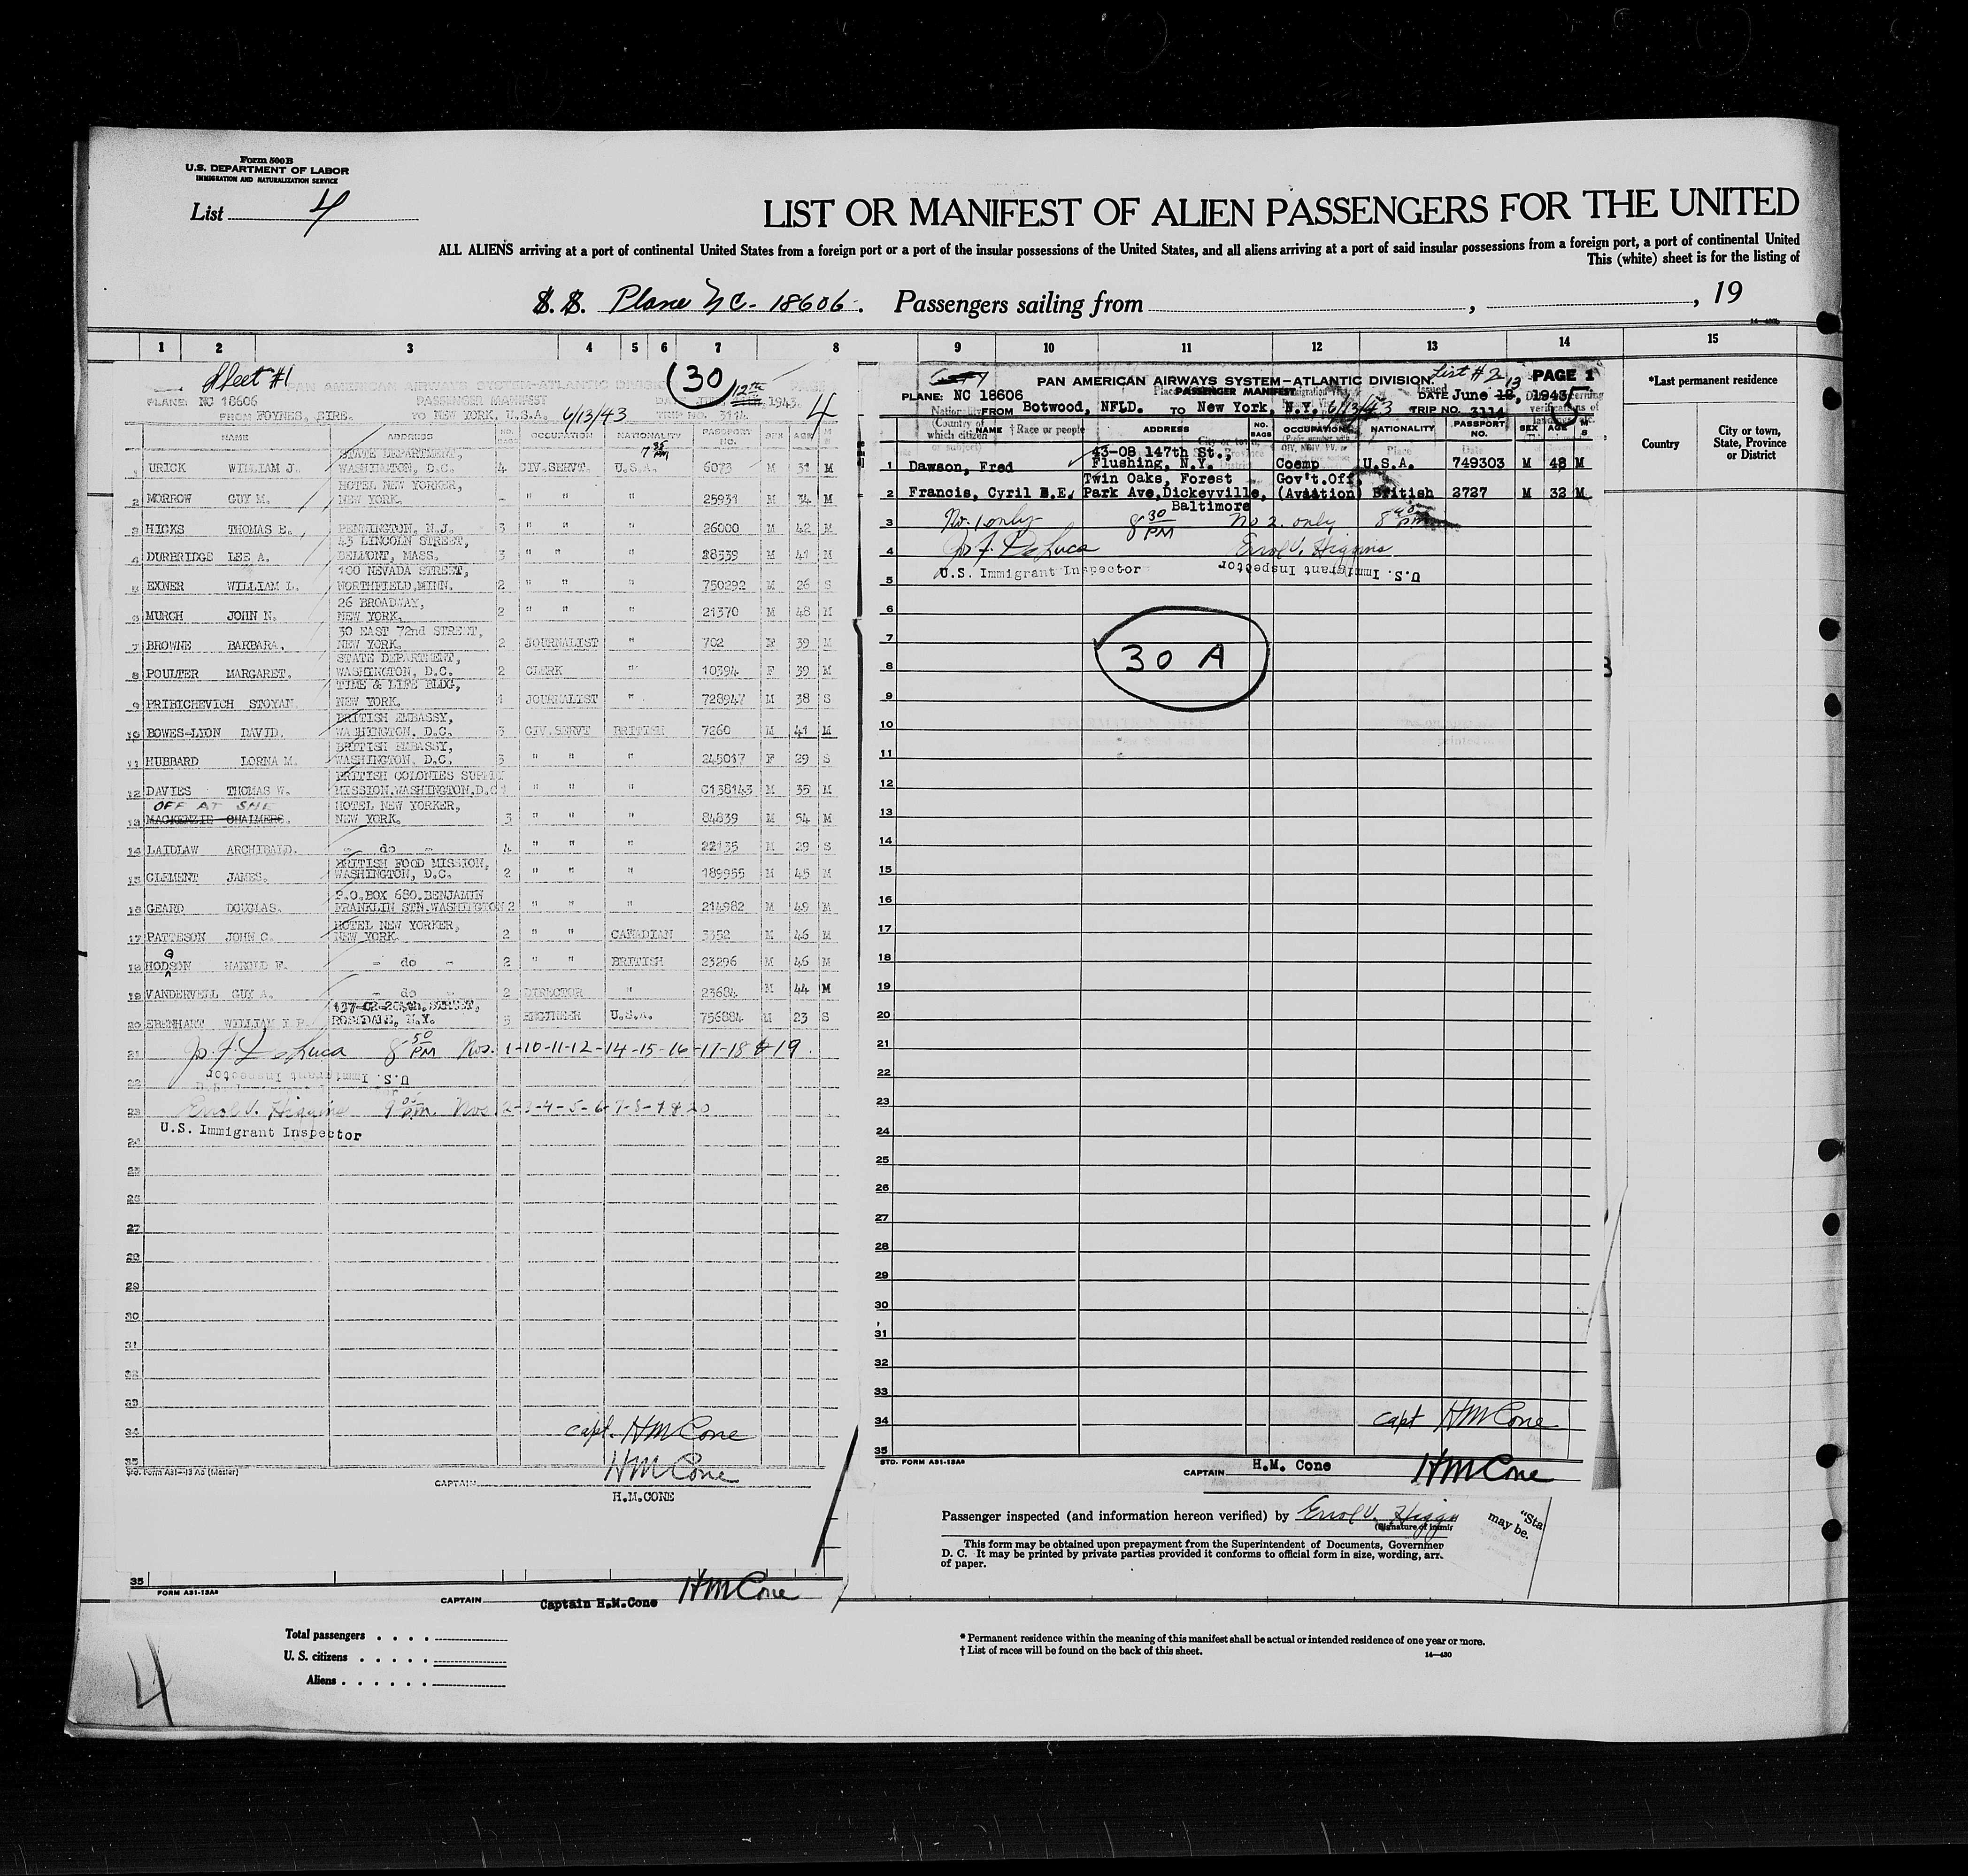 Form 500 B
U.S. DEPARTMENT OF LABOR
IMMIGRATION AND NATURALIZATION SERVICE
List 4
LIST OR MANIFEST OF ALIEN PASSENGERS FOR THE UNITED
ALL ALIENS arriving at a port of continental United States from a foreign port or a port of the insular possessions of the United States, and all aliens arriving at a port of said insular possessions from a foreign port, a port of continental United
This (white) sheet is for the listing of
S. S. Plane NC-18606. Passengers sailing from , , 19
1 2 3 4 5 6 7 8 9 10 11 12 13 14 15
Sheet #1 30
PAN AMERICAN AIRWAYS SYSTEM-ATLANTIC DIVISION 12th 1943. 4
PLANE: NC 18606 PASSENGER MANIFEST
FROM FOYNES, EIRE. TO NEW YORK, U.S.A. 6/13/43 TRIP NO. 3114.
NAME ADDRESS NO. BAGS OCCUPATION NATIONALITY PASSPORT NO. SEX AGE M S
7 35 PM
STATE DEPARTMENT,
1 URICK WILLIAM J. WASHINGTON, D.C. 4 CIV.SERVT. U.S.A. 6073 M 31 M
HOTEL NEW YORKER,
2 MORROW GUY M. NEW YORK. - " " " 25931 M 34 M
3 HICKS THOMAS E. PENNINGTON, N.J. 3 " " " 26000 M 42 M
43 LINCOLN STREET,
4 DURBRIDGE LEE A. BELMONT, MASS. 3 " " " 28539 M 41 M
100 NEVADA STREET,
5 EXNER WILLIAM L. NORTHFIELD,MINN. 2 " " " 750292 M 26 S
26 BROADWAY,
6 MURCH JOHN N. NEW YORK. 2 " " " 21370 M 48 M
30 EAST 72nd STREET,
7 BROWNE BARBARA. NEW YORK. 2 JOURNALIST " 702 F 39 M
STATE DEPARTMENT,
8 POULTER MARGARET. WASHINGTON, D.C. 2 CLERK " 10394 F 39 M
TIME & LIFE BLDG,
9 PRIBICHEVICH STOYAN. NEW YORK. 1 JOURNALIST " 728947 M 38 S
BRITISH EMBASSY,
10 BOWES-LYON DAVID. WASHINGTON, D.C. 3 CIV.SERVT BRITISH 7260 M 41 M
BRITISH EMBASSY,
11 HUBBARD LORNA M. WASHINGTON, D.C. 3 " " " 245017 F 29 S
BRITISH COLONIES SUPPLY
12 DAVIES THOMAS W. MISSION.WASHINGTON.D.C " " " C138143 M 35 M
OFF AT SHE HOTEL NEW YORKER,
13 MACKENZIE CHALMERS. NEW YORK. 3 " " " 84839 M 54 M
14 LAIDLAW ARCHIBALD. - do - 4 " " " 22135 M 29 S
BRITISH FOOD MISSION,
15 CLEMENT JAMES. WASHINGTON, D.C. 2 " " " 189955 M 45 M
P.O.BOX 680.BENJAMIN
16 GEARD DOUGLAS. FRANKLIN STN.WASHINGTON 2 " " " 214982 M 49 M
HOTEL NEW YORKER,
17 PATTESON JOHN C. NEW YORK. 2 " " CANADIAN 3352 M 46 M
G
18 HODSON HAROLD F. - do - 2 " " BRITISH 23296 M 46 M
19 VANDERVELL GUY A. - do - 2 DIRECTOR " 23684 M 44 M
STREET,
20 EBENHART WILLIAM ROSEDALE, N.Y. 3 ENGINEER U.S.A. 756884 M 23 S
21 Jo. F. DeLuca 8 50 PM Nos. 1-10-11-12-14-15-16-17-18 & 19.
22 U.S. Immigrant Inspector
23 Errol V. Higgins 9 05 P.M. Nos. 2-3-4-5-6-7-8-9 & 20
U.S. Immigrant Inspector
24
25
26
27
28
29
30
31
32
33
34 Capt. HMCone
35 HMCone
Std. Form A31-13 As (Master)
CAPTAIN
H.M.CONE
35
FORM A31-13As
CAPTAIN Captain H.M.Cone HMCone
Total passengers
U. S. citizens
Aliens
4
List #2 PAGE 1
PAN AMERICAN AIRWAYS SYSTEM-ATLANTIC DIVISION.
PLANE: NC 18606 PASSENGER MANIFEST DATE June 13, 1943
FROM Botwood, NFLD. TO New York, N.Y. 6/13/43 TRIP NO. 3114
NAME ADDRESS NO. BAGS OCCUPATION NATIONALITY PASSPORT NO. SEX AGE M S
43-08 147th St.,
1 Dawson, Fred Flushing, N.Y. Coemp U.S.A. 749303 M 48 M
Twin Oaks, Forest Gov't.Off.
2 Francis, Cyril E.E. Park Ave,Dickeyville, (Aviation) British 2727 M 32 M
Baltimore
3 No. 1 only 8 30 PM No 2. only 8 40 PM
4 Jo. F. DeLuca Errol V. Higgins
5 U.S. Immigrant Inspector U.S. Immigrant Inspector
6
7
30 A
8
9
10
11
12
13
14
15
16
17
18
19
20
21
22
23
24
25
26
27
28
29
30
31
32
33
34 Capt HMCone
35
STD. FORM A31-13As
CAPTAIN H.M. Cone HMCone
Passenger inspected (and information hereon verified) by Errol V. Higgins
"Sta
may be.
This form may be obtained upon prepayment from the Superintendent of Documents, Governmer
D. C. It may be printed by private parties provided it conforms to official form in size, wording, arr.
of paper.
* Permanent residence within the meaning of this manifest shall be actual or intended residence of one year or more.
† List of races will be found on the back of this sheet.
14-430
*Last permanent residence
Country
City or town, State, Province or District